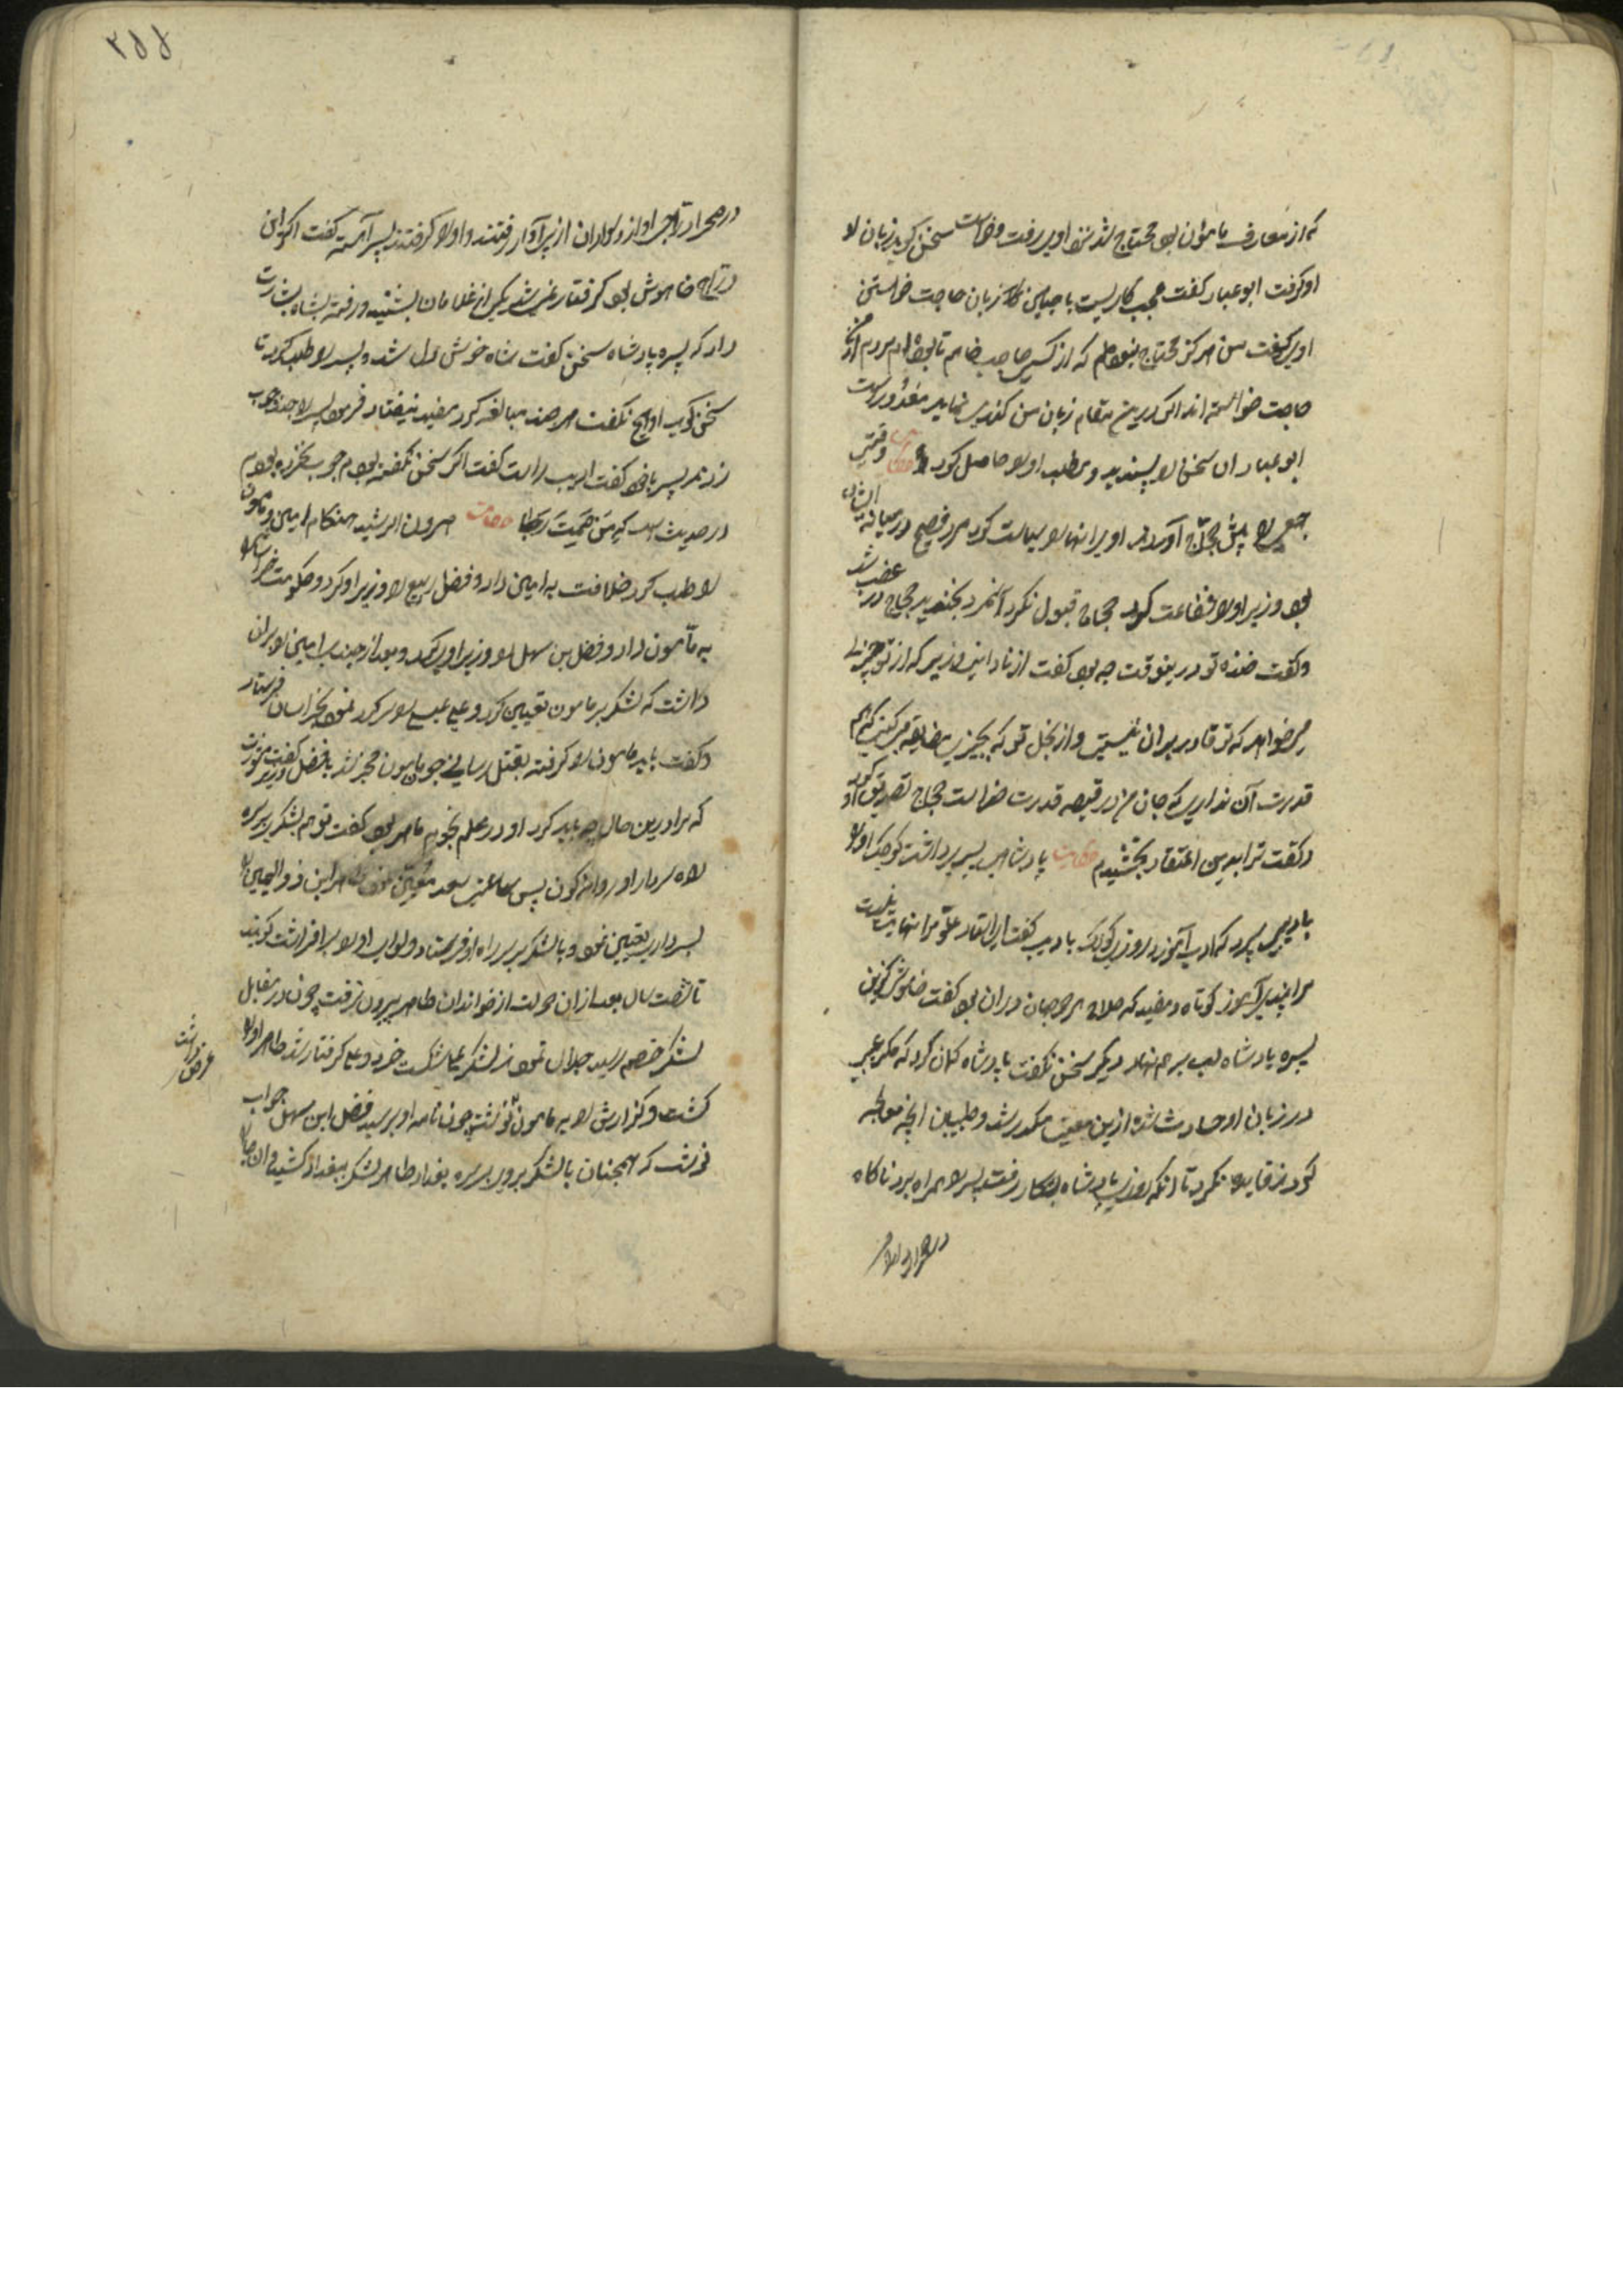 که از معارف مامون بود محتاج شد نزد او رفت و خواست سخن گوید زبان او
او گرفت ابو عباد گفت عجب کاریست با چنین زبان حاجت خواستن
او گفت من هرگز محتاج نبوده‌ام که از کسی حاجت خواهم تا بوده‌ام مردم از من
حاجت خواسته‌اند اگر درین مقام زبان من کندی نماید معذور است
ابو عباد ان سخن را پسندید و مطلب او را حاصل کرد حکایت وقتی
جمعی را پیش حجاج آوردند او برانها را سیاست کرد مرد فصیح در میانه ایشان
بود وزیر او را شفاعت کرد حجاج قبول نکرد آنمرد بخندید حجاج در غضب شد
و گفت خنده تو درینوقت چه بود گفت از نادانی وزیر که از تو چیزی
میخواهد که تو قادر بران نیستی و از بخل تو که بچیزی مضایقه میکنی که
قدرت آن نداری که جان من در قبضه قدرت خداست حجاج تصدیق کرد
و گفت ترا بدین اعتقاد بخشیدم حکایت پادشاهی پسری داشت کوچک او را
بادیبی سپرد که ادب آموزد روزی کودک با ادیب گفت ای استاد علوم را نهایت نیست
مرا چیزی آموز کوتاه و مفید که صلاح هر دو جهان در ان بود گفت خاموشی گزین
پسر پادشاه لب برهم نهاد دیگر سخن نگفت پادشاه گمان کرد که مگر عیبی
در زبان او حادث شده ازین معنی مکدر شد و طبیبان انچه معالجه
کردند فایده نکرد تا آنکه روزی پادشاه بشکار رفت پسر را همراه برد ناگاه
در صحرا دراج
۲۵۸
در صحرا دراجی آواز داد بازداران از پی آواز رفتند و او را گرفتند پسر آهسته گفت اگر این
دراج خاموش بود گرفتار نمی‌شد یکی از غلامان بشنید و رفته بشاه بشارت
داد که پسر پادشاه سخن گفت شاه خوش دل شد و پسر را طلب کرد تا
سخن گوید او هیچ نگفت هر چند مبالغه کرد مفید نیفتاد فرمود پسر را چند چوب
زدند پسر با خود گفت ادیب راست گفت اگر سخن نگفته بودم چوب نخورده بودم
در حدیث است که مَن صَمَتَ نَجَا حکایت هرون الرشید هنگام امین و مامون
را طلب کرد خلافت به امین داد و فضل ربیع را وزیر او کرد و حکومت خراسان
به مامون داد و فضل بن سهل را وزیر او کرد و بعد از چندی امین را بران
داشت که لشکر بر مامون تعیین کرد و علی عیسی را سر کرد نموده بخراسان فرستاد
و گفت باید مامون را گرفته بقتل رسانی چون مامون مخبر شد با فضل وزیر مشورت کرد
که مرا درین حال چه باید کرد او در علم نجوم ماهر بود گفت تو هم لشکر بر سر
راه سردار او روانه کن پس ساعت سعد معین نموده طاهر ابن ذوالیمینین را
بسرداری تعیین نمود و با لشکر بر سر راه او فرستاد و لوای او را برافراشت گویند
تا شصت سال بعد ازان دولت از خواندان طاهر بیرون نرفت چون در مقابل
لشکر خصم رسید جدال نمودند لشکر علی شکست خورد و علی گرفتار شد طاهر او را
کشت و گزارش را به مامون نوشت چون نامه او برسید فضل ابن سهل جواب
نوشت که همچنان با لشکر بروی بر سر بغداد طاهر لشکر ببغداد کشید و ان
عرض داشت